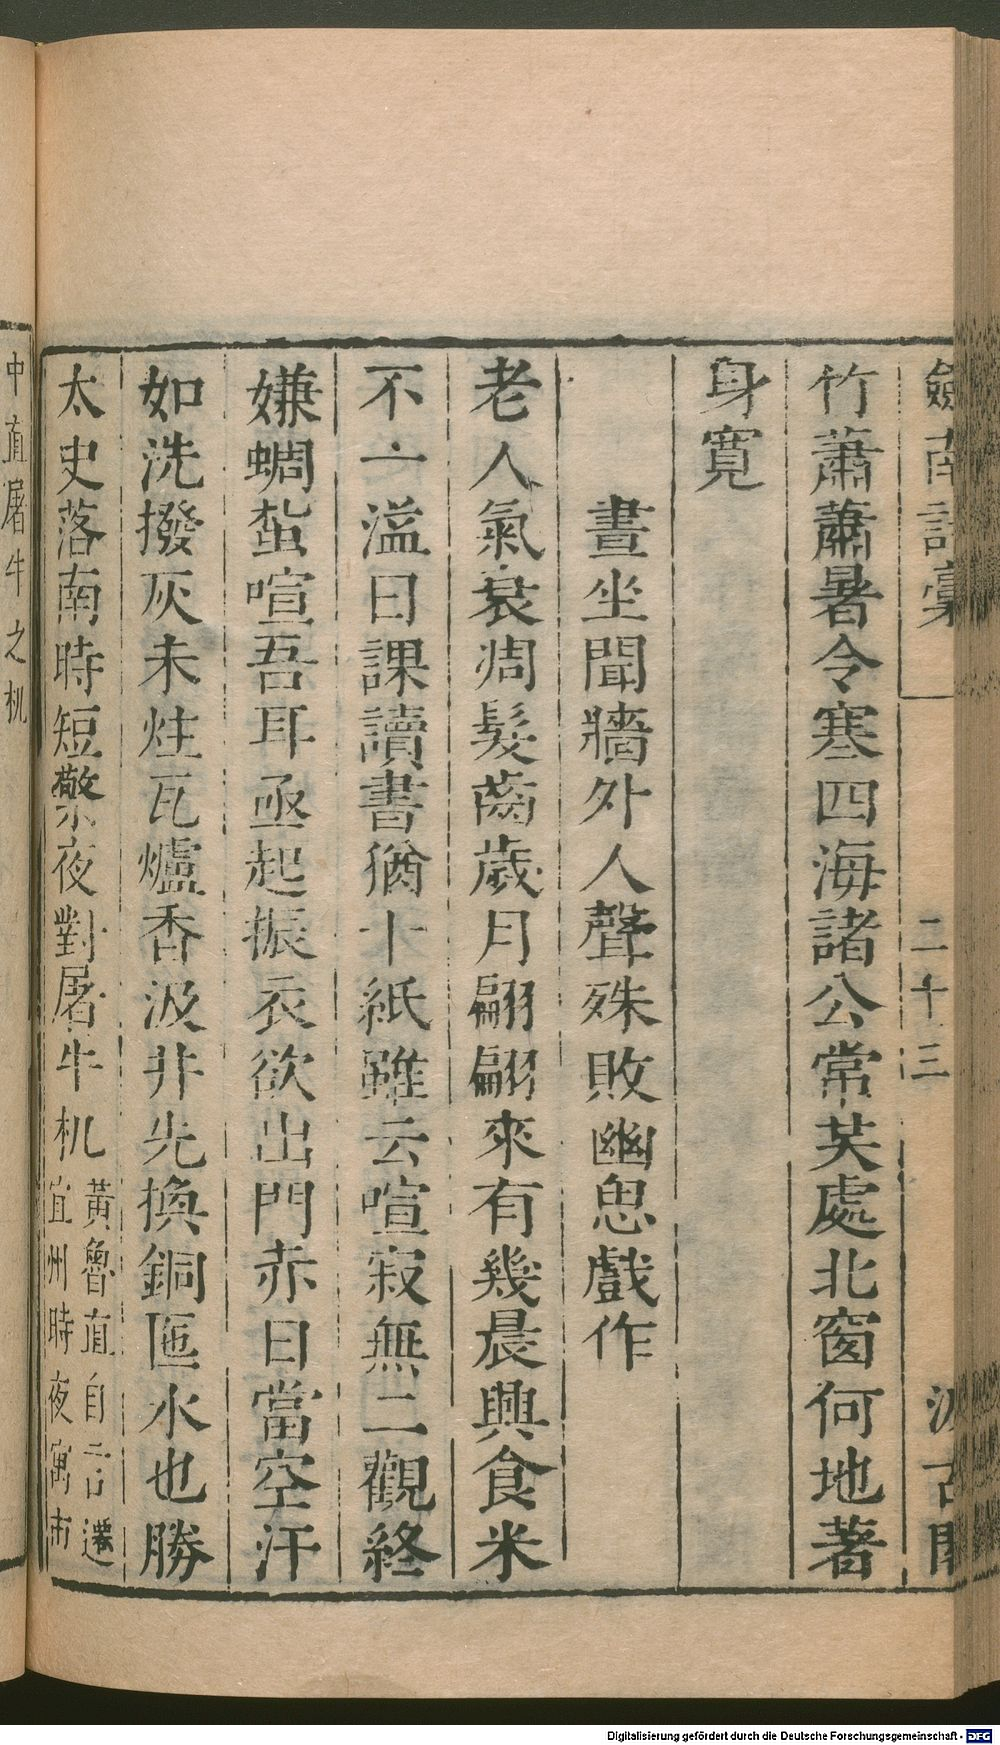 劍南詩稾
二十三
汲古閣
竹蕭蕭暑令寒四海諸公常笑處北窗何地著
身寬
晝坐聞牆外人聲殊敗幽思戲作
老人氣衰凋髮齒歲月翩翩來有幾晨興食米
不一溢日課讀書猶十紙雖云喧寂無二觀終
嫌蜩蜇喧吾耳亟起振衣欲出門赤日當空汗
如洗撥灰未炷瓦爐香汲井先換銅匜水也勝
太史落南時短檠夜對屠牛机
黃魯直自言遷
宜州時夜寓市
中直屠牛之机
Digitalisierung gefördert durch die Deutsche Forschungsgemeinschaft - DFG